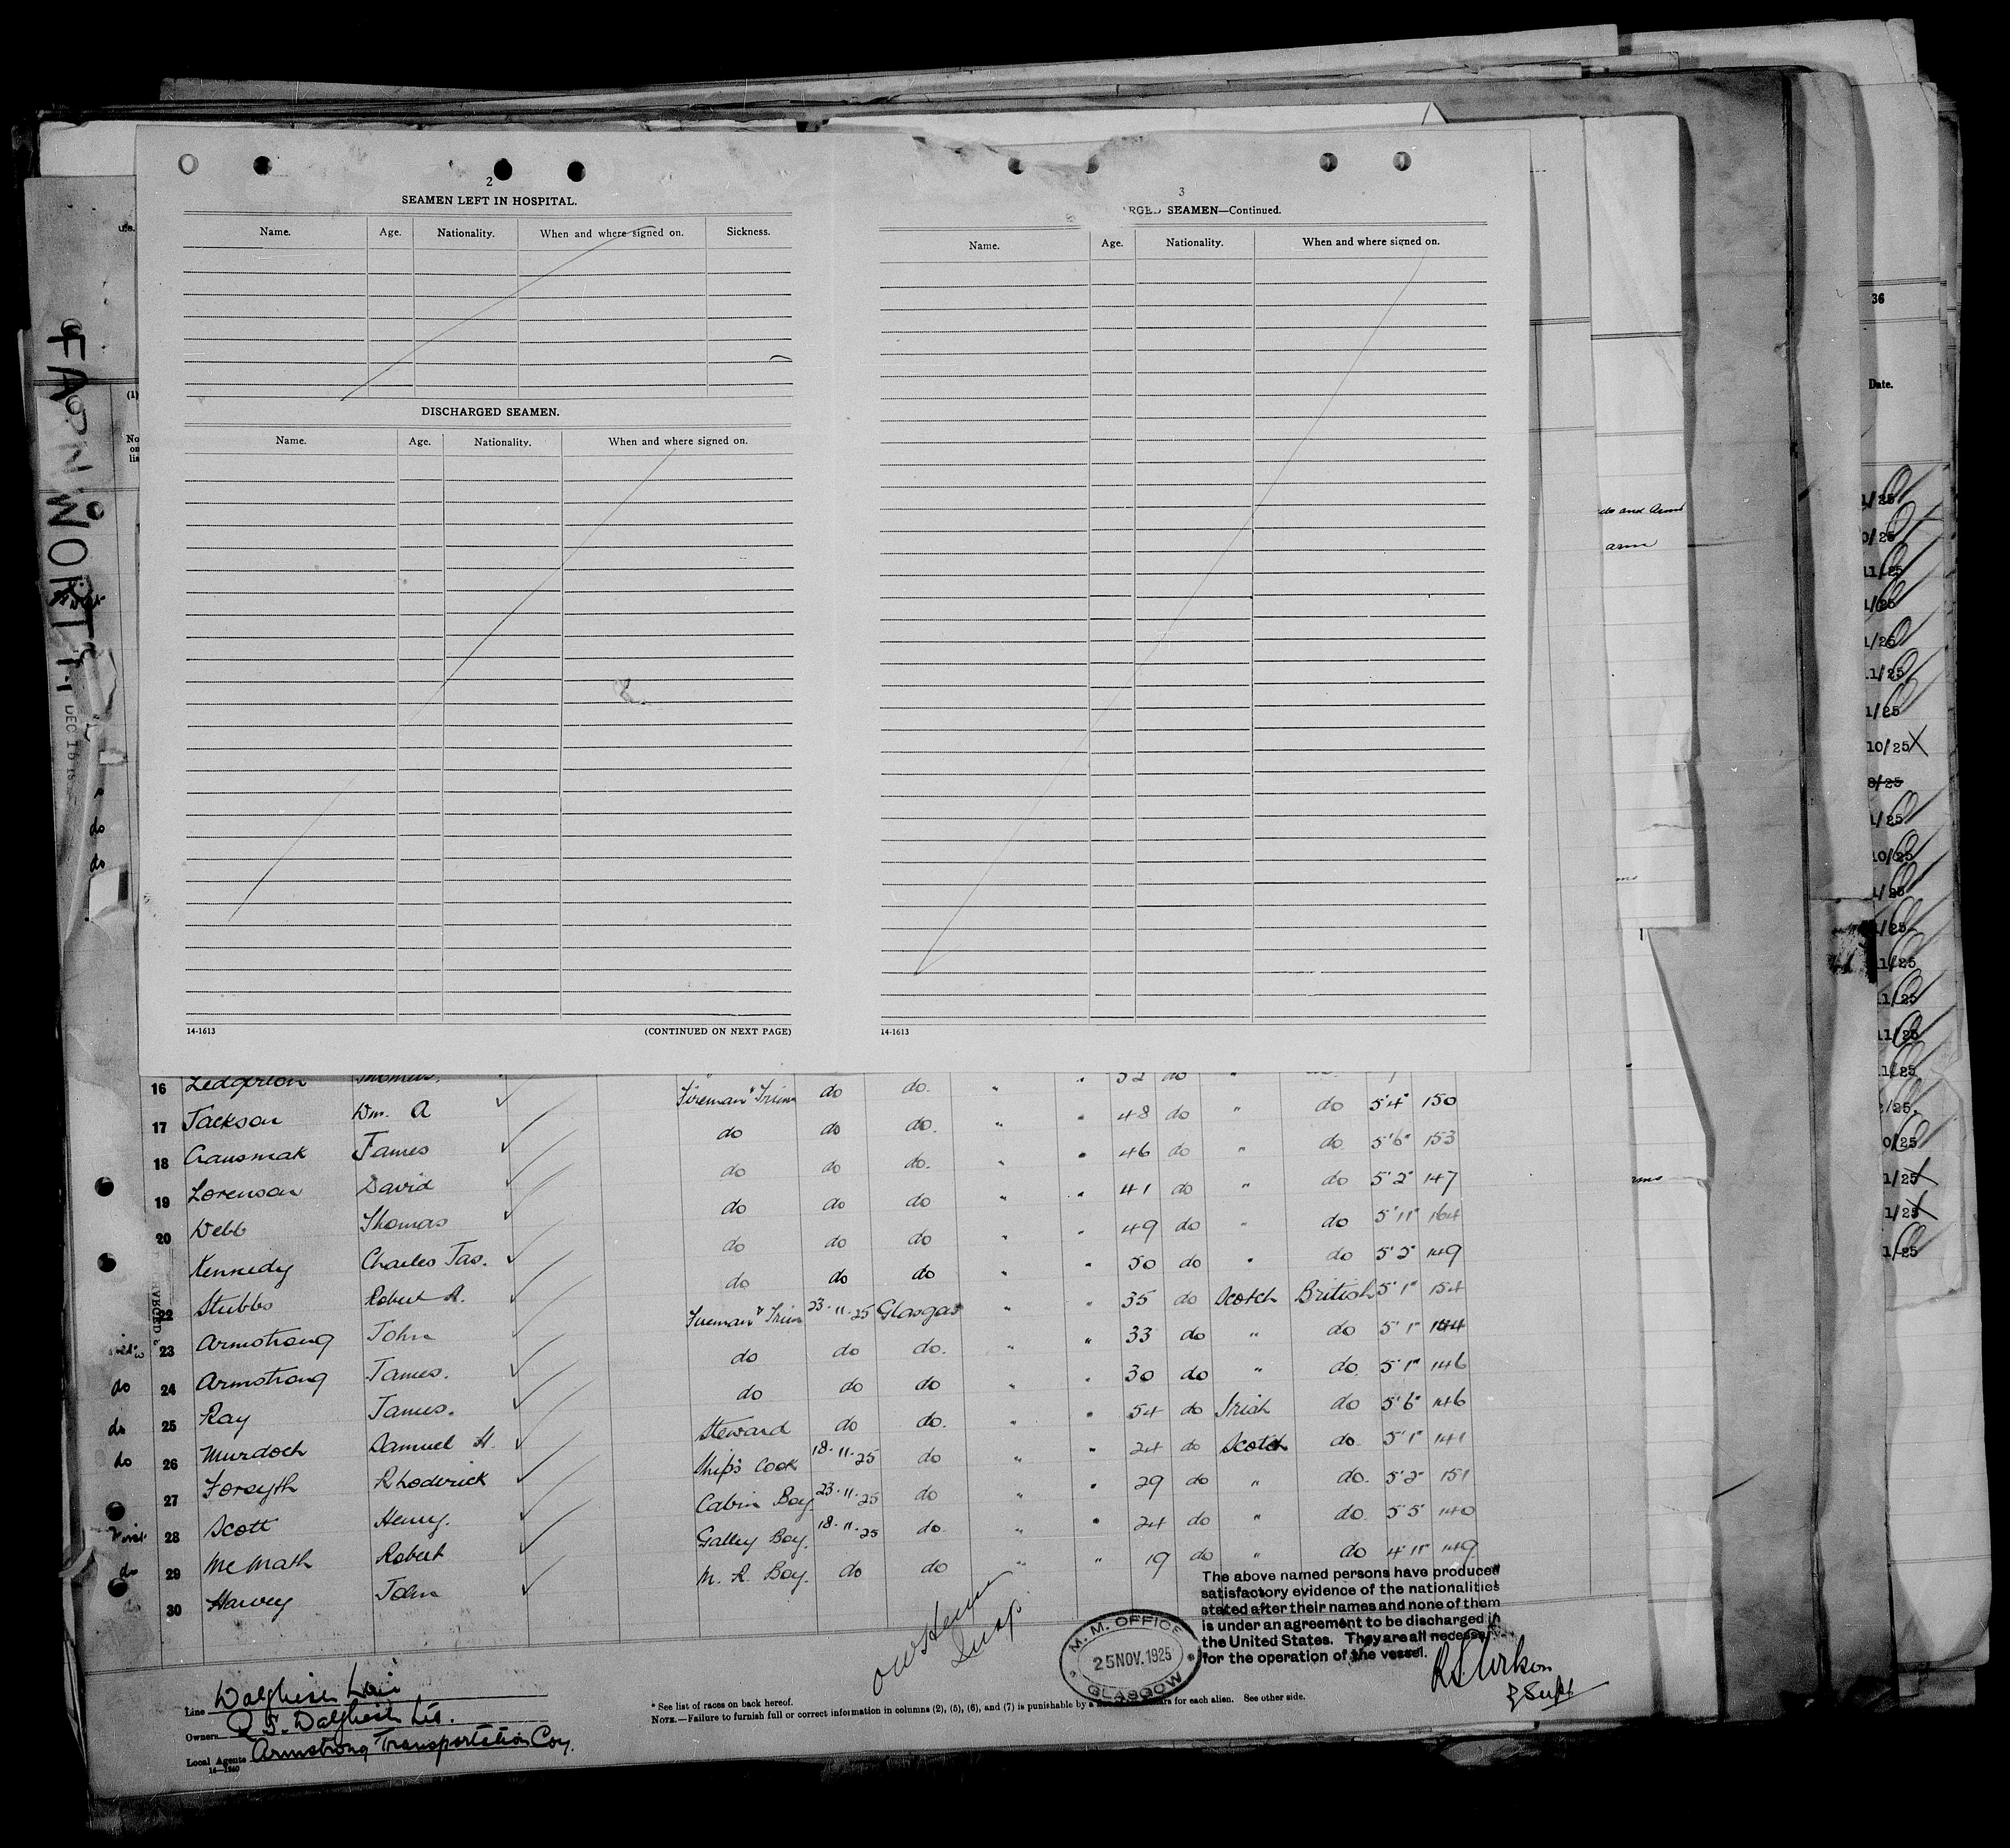 2
SEAMEN LEFT IN HOSPITAL.
Name. Age. Nationality. When and where signed on. Sickness.
DISCHARGED SEAMEN.
Name. Age. Nationality. When and where signed on.
14-1613 (CONTINUED ON NEXT PAGE)
3
ARGED SEAMEN—Continued.
Name. Age. Nationality. When and where signed on.
14-1613
FARNWORTH
DEC 16
(1)
36
Date.
ds and Arms
arm
1/25
0/25
11/25
1/25
1/25
11/25
1/25
10/25 X
8/25
1/25
10/25
1/25
1/25
11/25
11/25
11/25
11/25
/25
0/25
1/25 X
1/25 X
1/25
do
do
16 Ledgerton Thomas. Fireman & Trim do do. " " 52 do "
17 Jackson Wm. A do do do. " " 48 do " do 5'4" 150
18 Causmak James do do do. " " 46 do " do 5'6" 153
19 Lorenson David do do do " " 41 do " do 5'2" 147
20 Webb Thomas do do do " " 49 do " do 5'11" 164
Kennedy Charles Jas. do do do " " 50 do " do 5'2" 149
22 Stubbs Robert A. Fireman & Trim 23-11-25 Glasgow " " 35 do Scotch British 5'1" 154
23 Armstrong John do do do. " " 33 do " do 5'1" 144
do 24 Armstrong James. do do do " " 30 do " do 5'1" 146
do 25 Ray James. Steward do do. " " 54 do Irish do 5'6" 146
do 26 Murdoch Samuel H. Ship's Cook 18-11-25 do " " 24 do Scotch do 5'1" 141
27 Forsyth Rhoderick Cabin Boy 23-11-25 do " " 29 do " do. 5'2" 151
28 Scott Henry. Galley Boy. 18-11-25 do. " " 24 do " do. 5'5 140
do 29 McMath Robert M. R. Boy. do do " " 19 do " do 4'11" 149
30 Harvey John
The above named persons have produced
satisfactory evidence of the nationalities
stated after their names and none of them
is under an agreement to be discharged in
the United States. They are all necessary
for the operation of the vessel.
M. M. OFFICE
25 NOV. 1925
GLASGOW
Insp
Supt
Line Dalgliesh Line
Owners R. S. Dalgliesh Ltd.
Local Agents Armstrong Transportation Coy.
14-1240
* See list of races on back hereof.
NOTE.—Failure to furnish full or correct information in columns (2), (5), (6), and (7) is punishable by a for each alien. See other side.